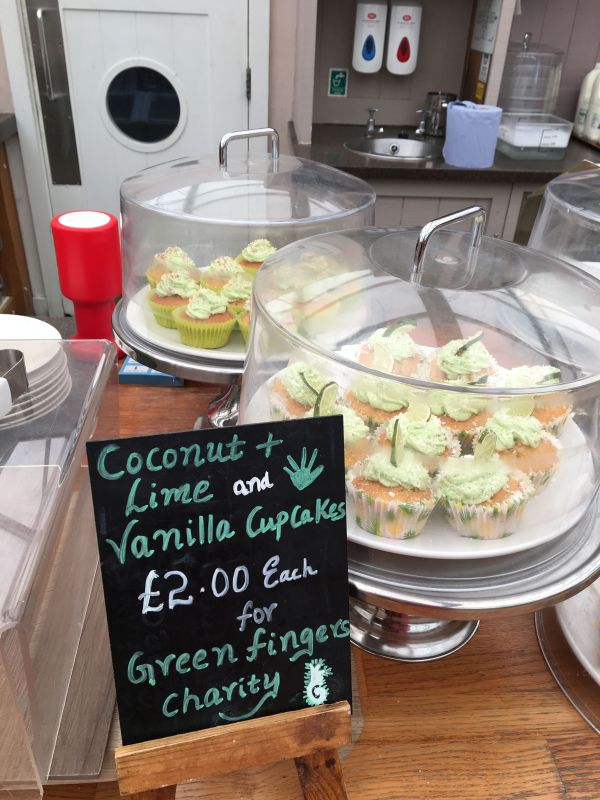 Coconut +
Lime and
Vanilla Cupcakes
£2.00 Each
for
Green fingers
charity